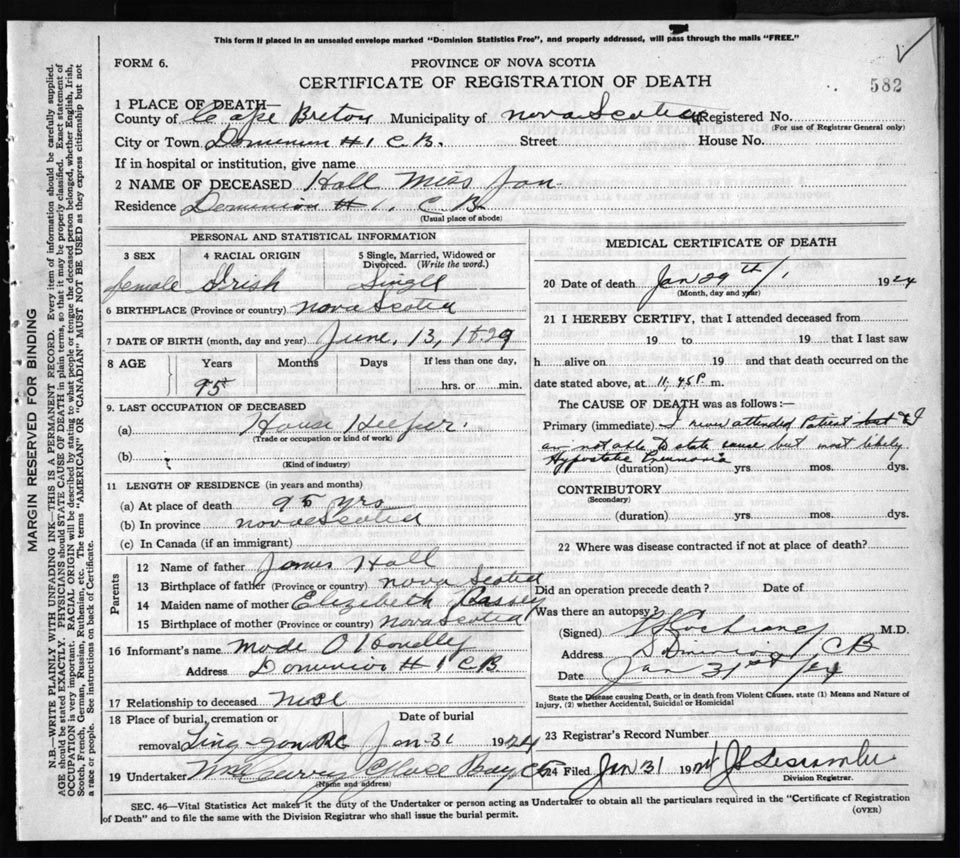 This form if placed in an unsealed envelope marked "Dominion Statistics Free", and properly addressed, will pass through the mails "FREE."
FORM 6.
PROVINCE OF NOVA SCOTIA
CERTIFICATE OF REGISTRATION OF DEATH
582
1 PLACE OF DEATH—
County of Cape Breton Municipality of Nova Scotia Registered No.
(For use of Registrar General only)
City or Town Dominion #1 C.B. Street House No.
If in hospital or institution, give name
2 NAME OF DECEASED Hall Miss Jan
Residence Dominion #1. C.B.
(Usual place of abode)
PERSONAL AND STATISTICAL INFORMATION
3 SEX 4 RACIAL ORIGIN 5 Single, Married, Widowed or Divorced. (Write the word.)
female Irish Single
6 BIRTHPLACE (Province or country) Nova Scotia
7 DATE OF BIRTH (month, day and year) June, 13, 1829
8 AGE Years Months Days If less than one day,
95 hrs. or min.
9. LAST OCCUPATION OF DECEASED
(a) House Keeper.
(Trade or occupation or kind of work)
(b)
(Kind of industry)
11 LENGTH OF RESIDENCE (in years and months)
(a) At place of death 95 yrs
(b) In province Nova Scotia
(c) In Canada (if an immigrant)
Parents
12 Name of father James Hall
13 Birthplace of father (Province or country) Nova Scotia
14 Maiden name of mother Elizabeth
15 Birthplace of mother (Province or country) Nova Scotia
16 Informant's name
Address Dominion #1 CB
17 Relationship to deceased
18 Place of burial, cremation or removal Date of burial
Jan 31 1924
19 Undertaker Glace Bay CB
(Name and address)
MEDICAL CERTIFICATE OF DEATH
20 Date of death Jan 29th 1924
(Month, day and year)
21 I HEREBY CERTIFY, that I attended deceased from
19 to 19 that I last saw
h alive on 19 and that death occurred on the
date stated above, at 11.45 P. m.
The CAUSE OF DEATH was as follows:—
Primary (immediate) I never attended Patient but & I
am not able to state cause but most likely
Hypostatic Pneumonia
(duration) yrs. mos. dys.
CONTRIBUTORY
(Secondary)
(duration) yrs. mos. dys.
22 Where was disease contracted if not at place of death?
Did an operation precede death? Date of
Was there an autopsy?
(Signed) M.D.
Address Dominion CB
Date Jan 31st /24
State the Disease causing Death, or in death from Violent Causes, state (1) Means and Nature of Injury, (2) whether Accidental, Suicidal or Homicidal
23 Registrar's Record Number
24 Filed Jan 31 1924
Division Registrar.
SEC. 46—Vital Statistics Act makes it the duty of the Undertaker or person acting as Undertaker to obtain all the particulars required in the "Certificate of Registration of Death" and to file the same with the Division Registrar who shall issue the burial permit.
(OVER)
MARGIN RESERVED FOR BINDING
N.B.—WRITE PLAINLY WITH UNFADING INK—THIS IS A PERMANENT RECORD. Every item of information should be carefully supplied.
AGE should be stated EXACTLY. PHYSICIANS should STATE CAUSE OF DEATH in plain terms, so that it may be properly classified. Exact statement of
OCCUPATION is very important. RACIAL ORIGIN will be described by stating to what people or tongue the deceased person belonged, whether English, Irish,
Scotch, French, German, Russian, Ruthenian, etc. The terms "AMERICAN" OR "CANADIAN" MUST NOT BE USED as they express citizenship but not
a race or people. See instructions on back of Certificate.